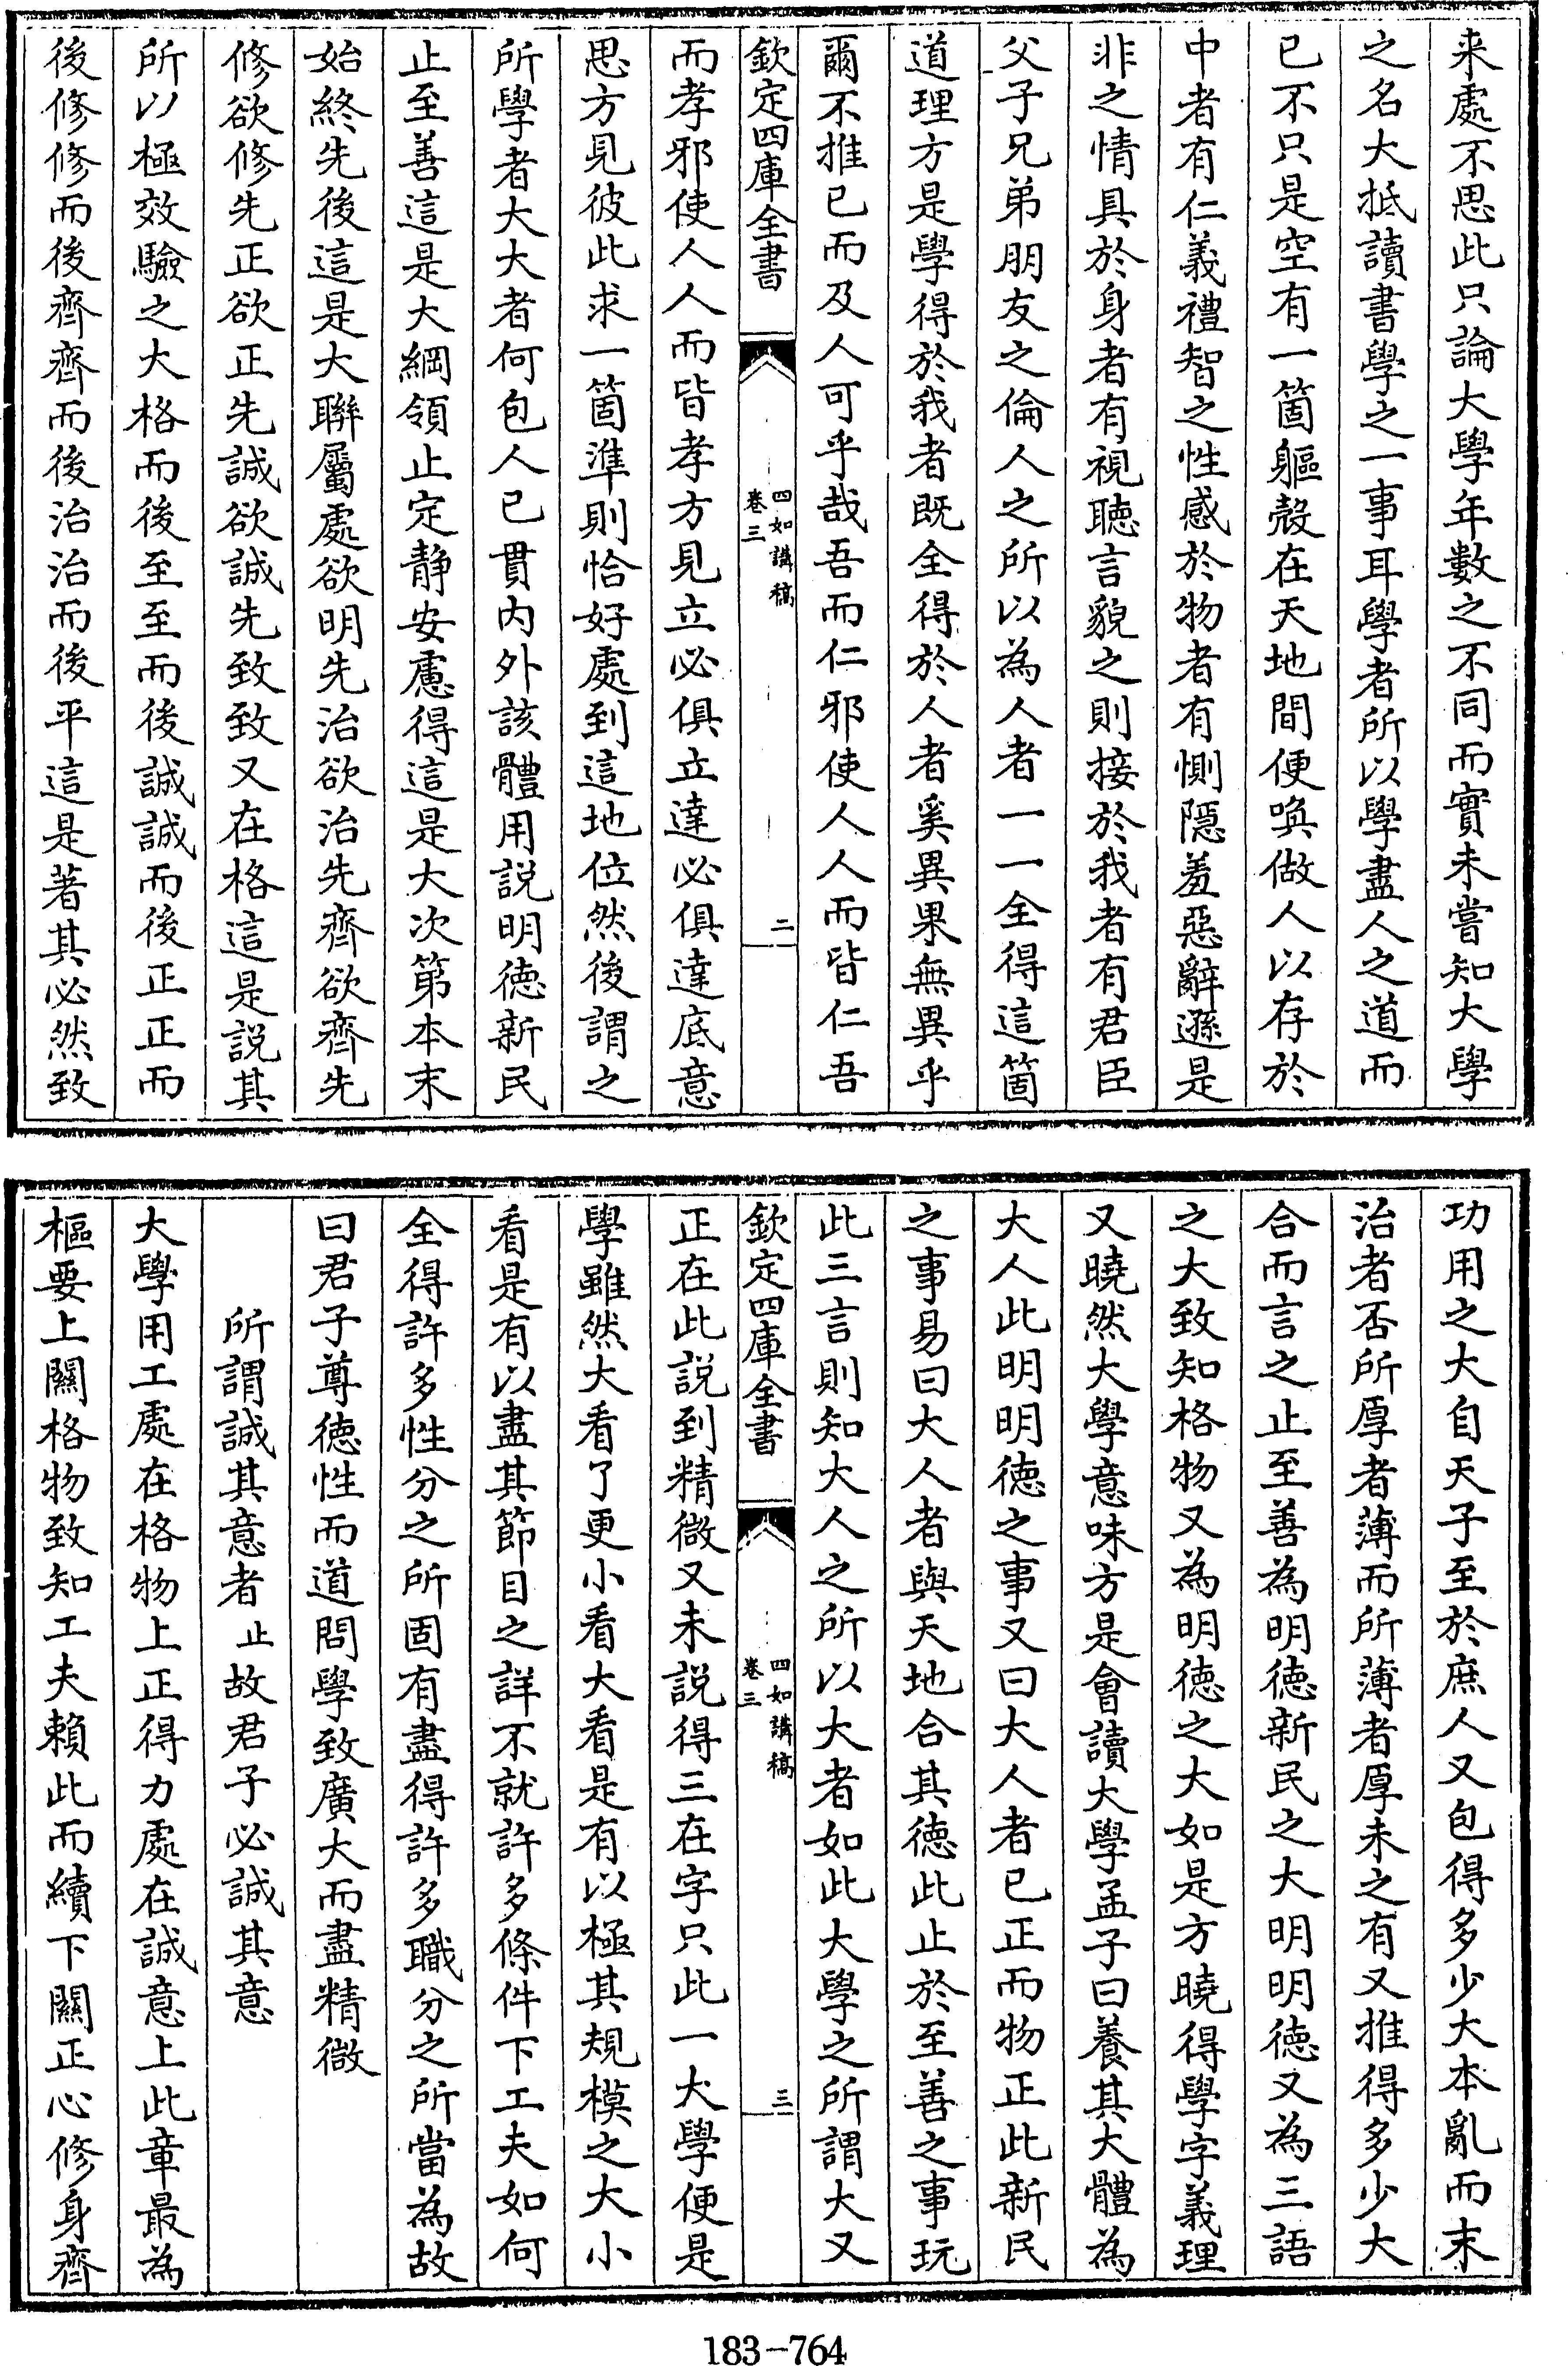 来處不思此只論大學年數之不同而實未嘗知大學
之名大抵讀書學之一事耳學者所以學盡人之道而
已不只是空有一箇軀殼在天地間便喚做人以存於
中者有仁義禮智之性感於物者有惻隱羞惡辭遜是
非之情具於身者有視聴言貌之則接於我者有君臣
父子兄弟朋友之倫人之所以為人者一一全得這箇
道理方是學得於我者既全得於人者奚異果無異乎
爾不推已而及人可乎哉吾而仁邪使人人而皆仁吾
欽定四庫全書
四如講稿
卷三
二
而孝邪使人人而皆孝方見立必俱立達必俱達底意
思方見彼此求一箇準則恰好處到這地位然後謂之
所學者大大者何包人已貫内外該體用説明徳新民
止至善這是大綱領止定静安慮得這是大次第本末
始終先後這是大聨屬處欲明先治欲治先齊欲齊先
修欲修先正欲正先誠欲誠先致致又在格這是説其
所以極效驗之大格而後至至而後誠誠而後正正而
後修修而後齊齊而後治治而後平這是著其必然致
功用之大自天子至於庶人又包得多少大本亂而末
治者否所厚者薄而所薄者厚未之有又推得多少大
合而言之止至善為明徳新民之大明明徳又為三語
之大致知格物又為明徳之大如是方曉得學字義理
又曉然大學意味方是會讀大學孟子曰養其大體為
大人此明明徳之事又曰大人者已正而物正此新民
之事易曰大人者與天地合其徳此止於至善之事玩
此三言則知大人之所以大者如此大學之所謂大又
欽定四庫全書
四如講稿
卷三
三
正在此説到精微又未説得三在字只此一大學便是
學雖然大看了更小看大看是有以極其規模之大小
看是有以盡其節目之詳不就許多條件下工夫如何
全得許多性分之所固有盡得許多職分之所當為故
曰君子尊徳性而道問學致廣大而盡精微
所謂誠其意者止故君子必誠其意
大學用工處在格物上正得力處在誠意上此章最為
樞要上關格物致知工夫賴此而續下關正心修身齊
183-764